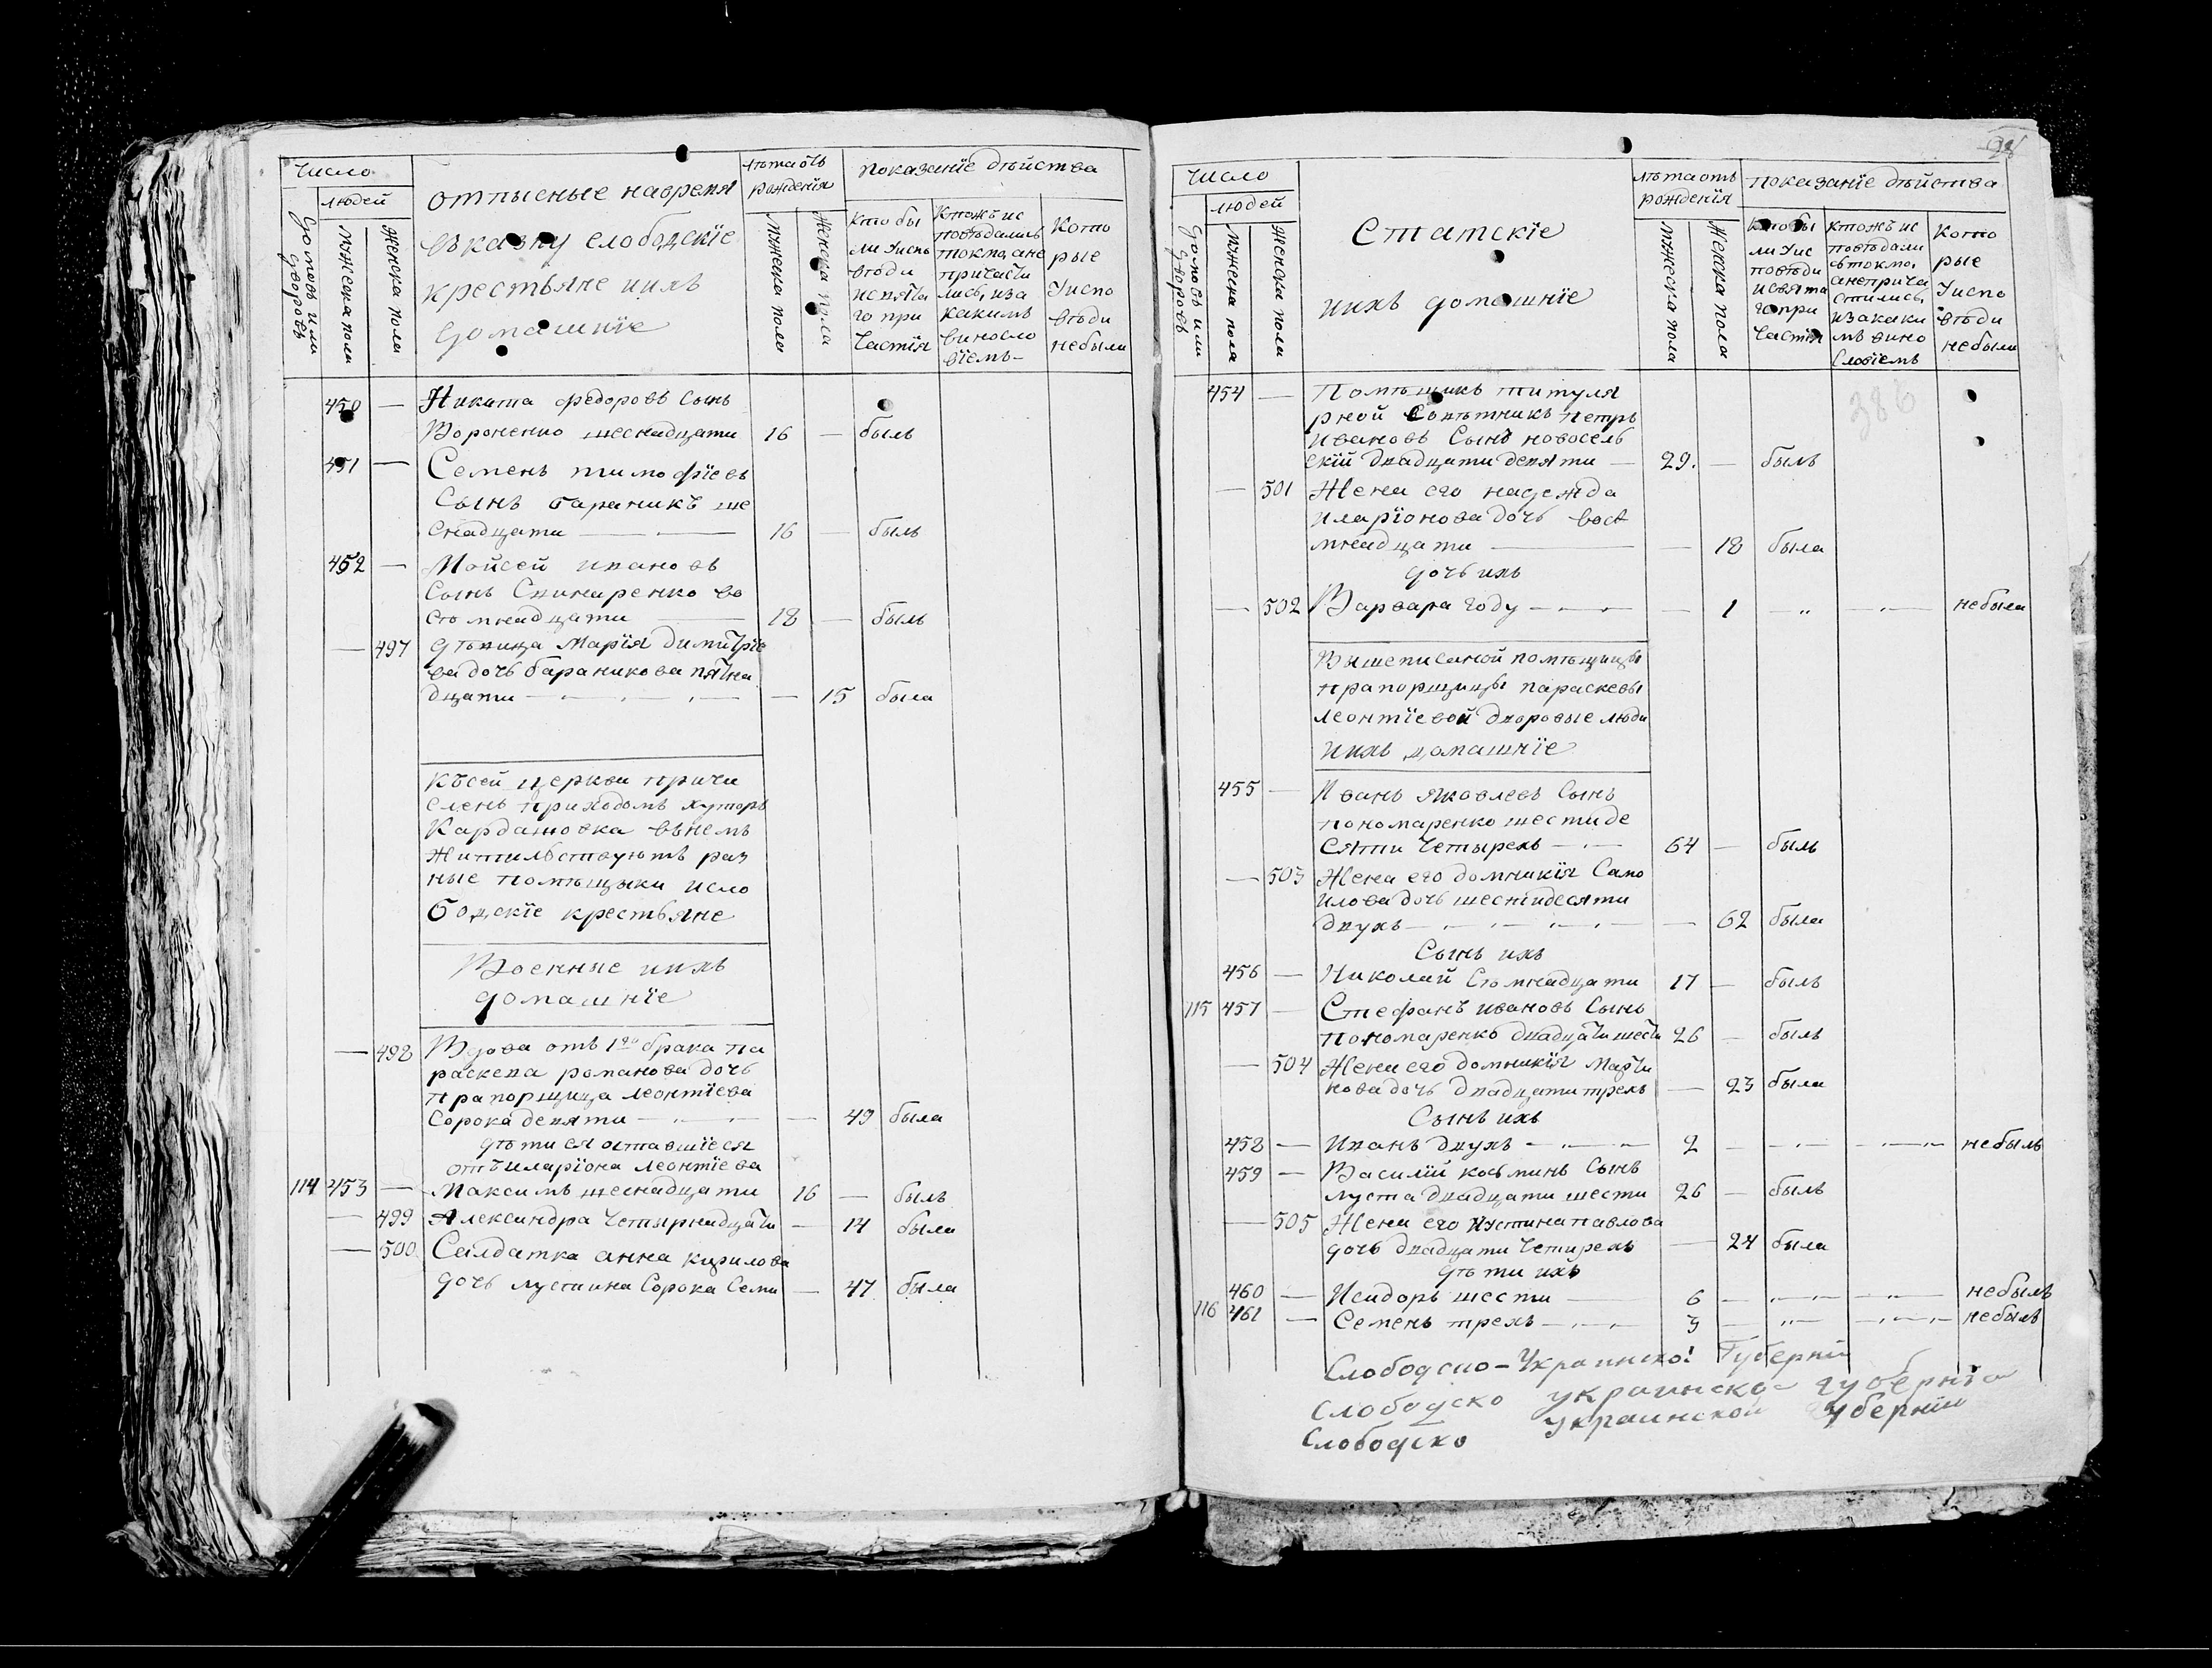 Число
людей
Домовъ или дворовъ
Мужеска пола
Женска пола
отписные навремя
въказну слободскїе
крестьяне иихъ
домашнїе
лѣта отъ
рожденїя
Мужеска пола
Женска пола
показанїе дѣйства
Кто бы
ли Уиспо
вѣди
исвята
го при
частїя
Ктожъ ис
повѣдались
токмо, ане
причасти
лись, иза
какимъ
виносло
вїемъ-
Кото
рые
Уиспо
вѣди
небыли
450 — Никита Федоровъ Сынъ
Вороненко шеснадцати 16 — былъ
451 — Семенъ тимофїевъ
Сынъ бараникъ ше
снадцати — 16 — былъ
452 — Мойсей ивановъ
Сынъ Слинаренко во
стомнадцати — 18 — былъ
— 497 дѣвица Марїя димитрїе
ва дочь бараникова пятна
дцати — — 15 была
Късей церкви причи
сленъ приходомъ хуторъ
Кардашовка внемъ
жительствуютъ раз
ные помѣщики исло
бодскїе крестьяне
Военные иихъ
домашнїе
— 498 Вдова отъ 1го брака па
раскева романова дочь
прапорщица леонтїева
Сорока девяти — — 49 была
дѣти ея оставшїеся
отъ иларїона леонтїева
114 453 — Максимъ шеснадцати 16 — былъ
— 499 Александра четырнадцати — 14 была
— 500 Салдатка анна кирилова
дочь лустина Сорока Семи — 47 была
Число
людей
Домовъ или дворовъ
Мужеска пола
Женска пола
Статскїе
иихъ домашнїе
лѣта отъ
рожденїя
Мужеска пола
Женска пола
показанїе дѣйства
Кто бы
ли Уис
повѣди
исвята
го при
частїя
Ктожъ ис
повѣдали
сь токмо,
анеприча
стились,
изакаки
мъ вино
словїемъ
Кото
рые
Уиспо
вѣди
небыли
386
454 — Помѣщикъ титуля
рной Совѣтникъ петръ
ивановъ Сынъ новосель
скїй двадцати девяти — 29. — былъ
— 501 Жена его надежда
иларїонова дочь вост
мнадцати — — 18 была
дочь ихъ
— 502 Варвара году — — 1 — — небыла
Вышеписаной помѣщицы
прапорщицы параскевы
леонтїевой дворовые люди
иихъ домашнїе
455 — Иванъ яковлевъ Сынъ
пономаренко шестиде
сяти четырехъ — 64 — былъ
— 503 Жена его домникїя Само
илова дочь шестидесяти
двухъ — — 62 была
Сынъ ихъ
456 — Николай Стомнадцати 17 — былъ
115 457 — Стефанъ ивановъ Сынъ
пономаренко двадцати шести 26 — былъ
— 504 Жена его домникїя Марти
нова дочь двадцати трехъ — 23 была
Сынъ ихъ
458 — Иванъ двухъ — 2 — — — небылъ
459 — Василїй косминъ Сынъ
луста двадцати шести 26 — былъ
— 505 Жена его Иустина павлова
дочь двадцати четирехъ — 24 была
дѣти ихъ
460 — Исидоръ шести — 6 — — — небылъ
116 461 — Семенъ трехъ — 3 — — — небылъ
Слободско-Украинско! Губернїи
Слободско украинско губернїи
Слободско Украинской губернїи